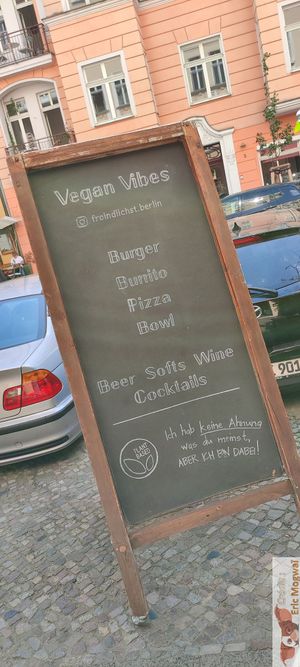 Vegan Vibes
froindlichst.berlin
Burger
Burrito
Pizza
Bowl
Beer Softs Wine
Cocktails
PLANT
BASED
Ich hab keine Ahnung
was du meinst,
ABER ICH BIN DABEI!
901
Eric Mogwai